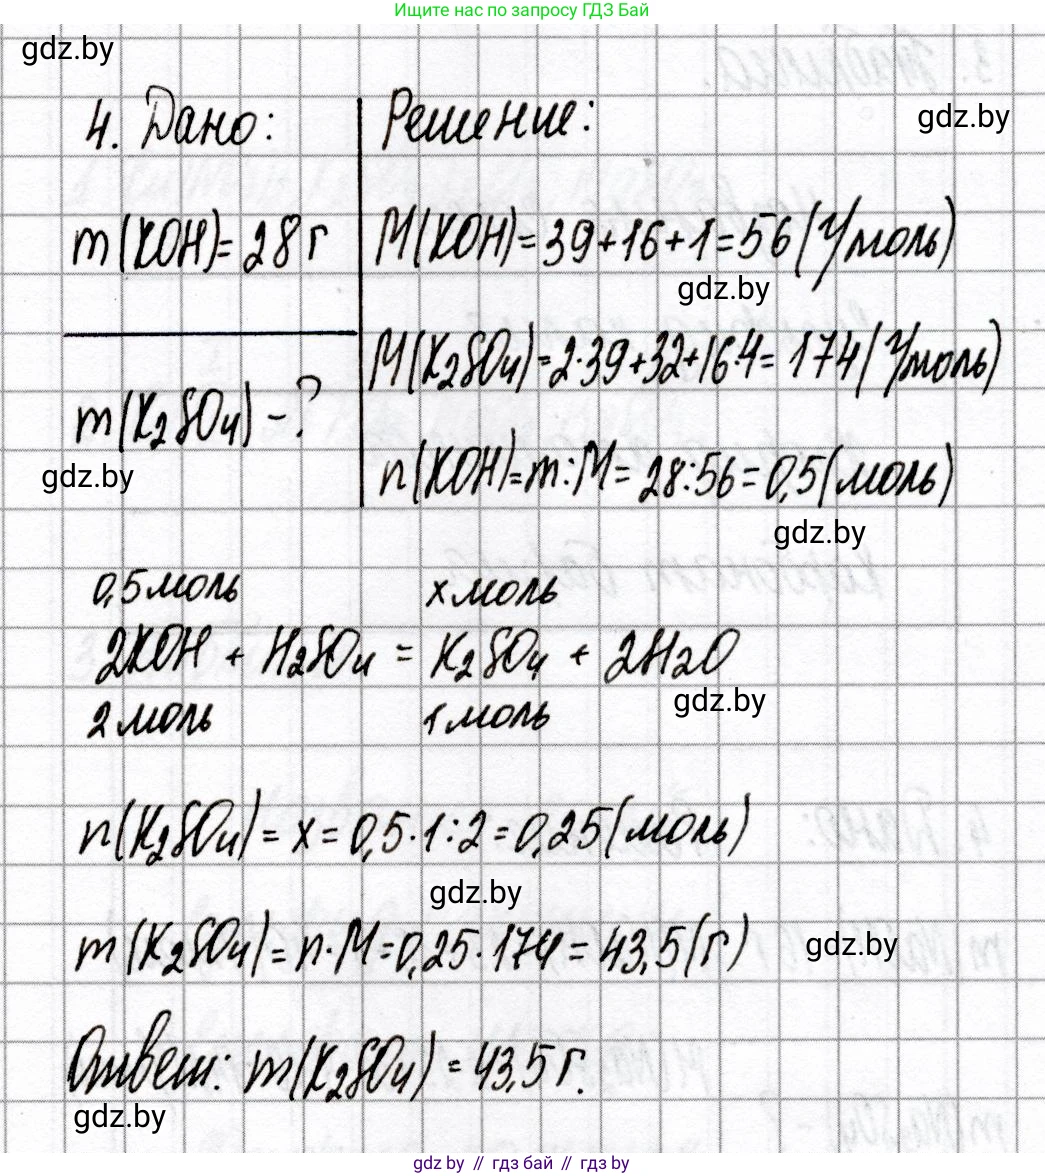 Ищите нас по запросу ГДЗ Бай
gdz.by
4. Дано:
Решение:
gdz.by
m(KOH)=28 г
M(KOH)=39+16+1=56(г/моль)
gdz.by
M(K₂SO₄)=2·39+32+16·4=174(г/моль)
m(K₂SO₄)-?
gdz.by
n(KOH)=m:M=28:56=0,5(моль)
gdz.by
0,5моль хмоль
2KOH + H₂SO₄ = K₂SO₄ + 2H₂O
gdz.by
2моль 1моль
n(K₂SO₄)=x=0,5·1:2=0,25(моль)
gdz.by
m(K₂SO₄)=n·M=0,25·174=43,5(г)
gdz.by
Ответ: m(K₂SO₄)=43,5 г.
gdz.by
gdz by // гдз бай // гдз.by